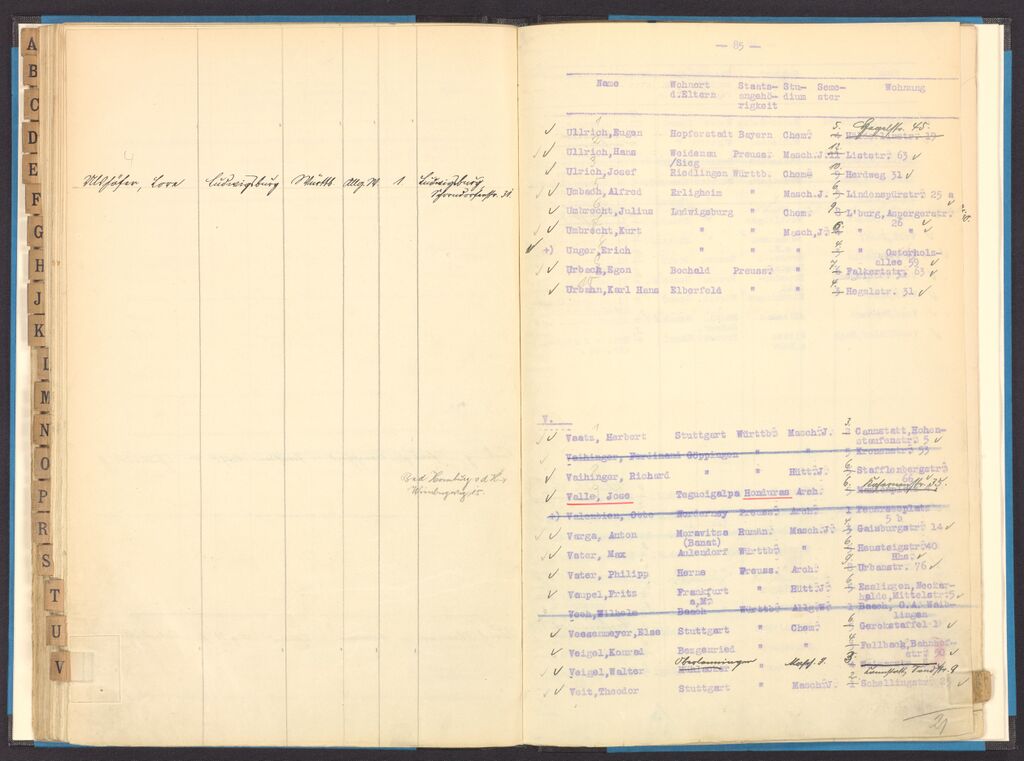 A
B
C
D
E
F
G
H
J
K
L
M
N
O
P
R
S
T
U
V
4
Ulshöfer, Lore Ludwigsburg Württb Allg.W. 1 Ludwigsburg
Schorndorferstr. 38.
Bad Homburg v d H.,
— 85 —
Name Wohnort d.Eltern Staats-angehö-rigkeit Stu-dium Seme-ster Wohnung
Ullrich,Eugen Hopferstadt Bayern Chem. 5. Hegelstr. 45.
Ullrich,Hans Weidenau Preuss. Masch.J. Liststr. 63
/Sieg
Ulrich,Josef Riedlingen Württb. Chem. Herdweg 31
Umbach,Alfred Erligheim " Masch.J. Lindenspürstr. 25 a
Umbrecht,Julius Ludwigsburg " Chem. 9 L'burg, Aspergerstr.
26
Umbrecht,Kurt " " Masch,J. 6. " "
+) Unger,Erich " " " 4. " Osterholz-
allee 59
Urbach,Egon Bocheld Preuss. " 7. Falkertstr. 63
Urbahn,Karl Hans Elberfeld " " 4. Hegelstr. 31
V.
Vaatz, Herbert Stuttgart Württb. Masch.J. 3. Cannstatt,Hohen-
staufenstr. 5
Vaihinger, Ferdinand Göppingen " " Kronenstr. 53
Vaihinger, Richard " " Hütt.J. 6. Stafflenbergstr.
66
Valle, Jose Tegucigalpa Honduras Arch. 6.
+) Valentien, Otto Norderney Preuss. Arch. 1 Feuerseeplatz
5 b
Varga, Anton Moravitza Rumän. Masch.J. 4 Gaisburgstr. 14
(Banat)
Vater, Max Aulendorf Württb. " 6. Hausteigstr. 40
Hhs.
Vater, Philipp Herne Preuss. Arch. 9. Urbanstr. 76
Vaupel,Fritz Frankfurt " Hütt.J. 6 Esslingen, Neckar-
a.M. halde,Mittelstr. 5
Veeh,Wilhelm Beech Württb. Allg.W. 1 Beech, O.A. Waib-
lingen
Veesenmeyer,Else Stuttgart " Chem. 6. Gerokstaffel 1
Veigel,Konrad Bezgenried " 4. Fellbach,Bahnhof-
str. 50
Veigel,Walter Oberlenningen " Masch. J. 3. Cannstatt,
Veit,Theodor Stuttgart " Masch.V. 2. Schellingstr.
21